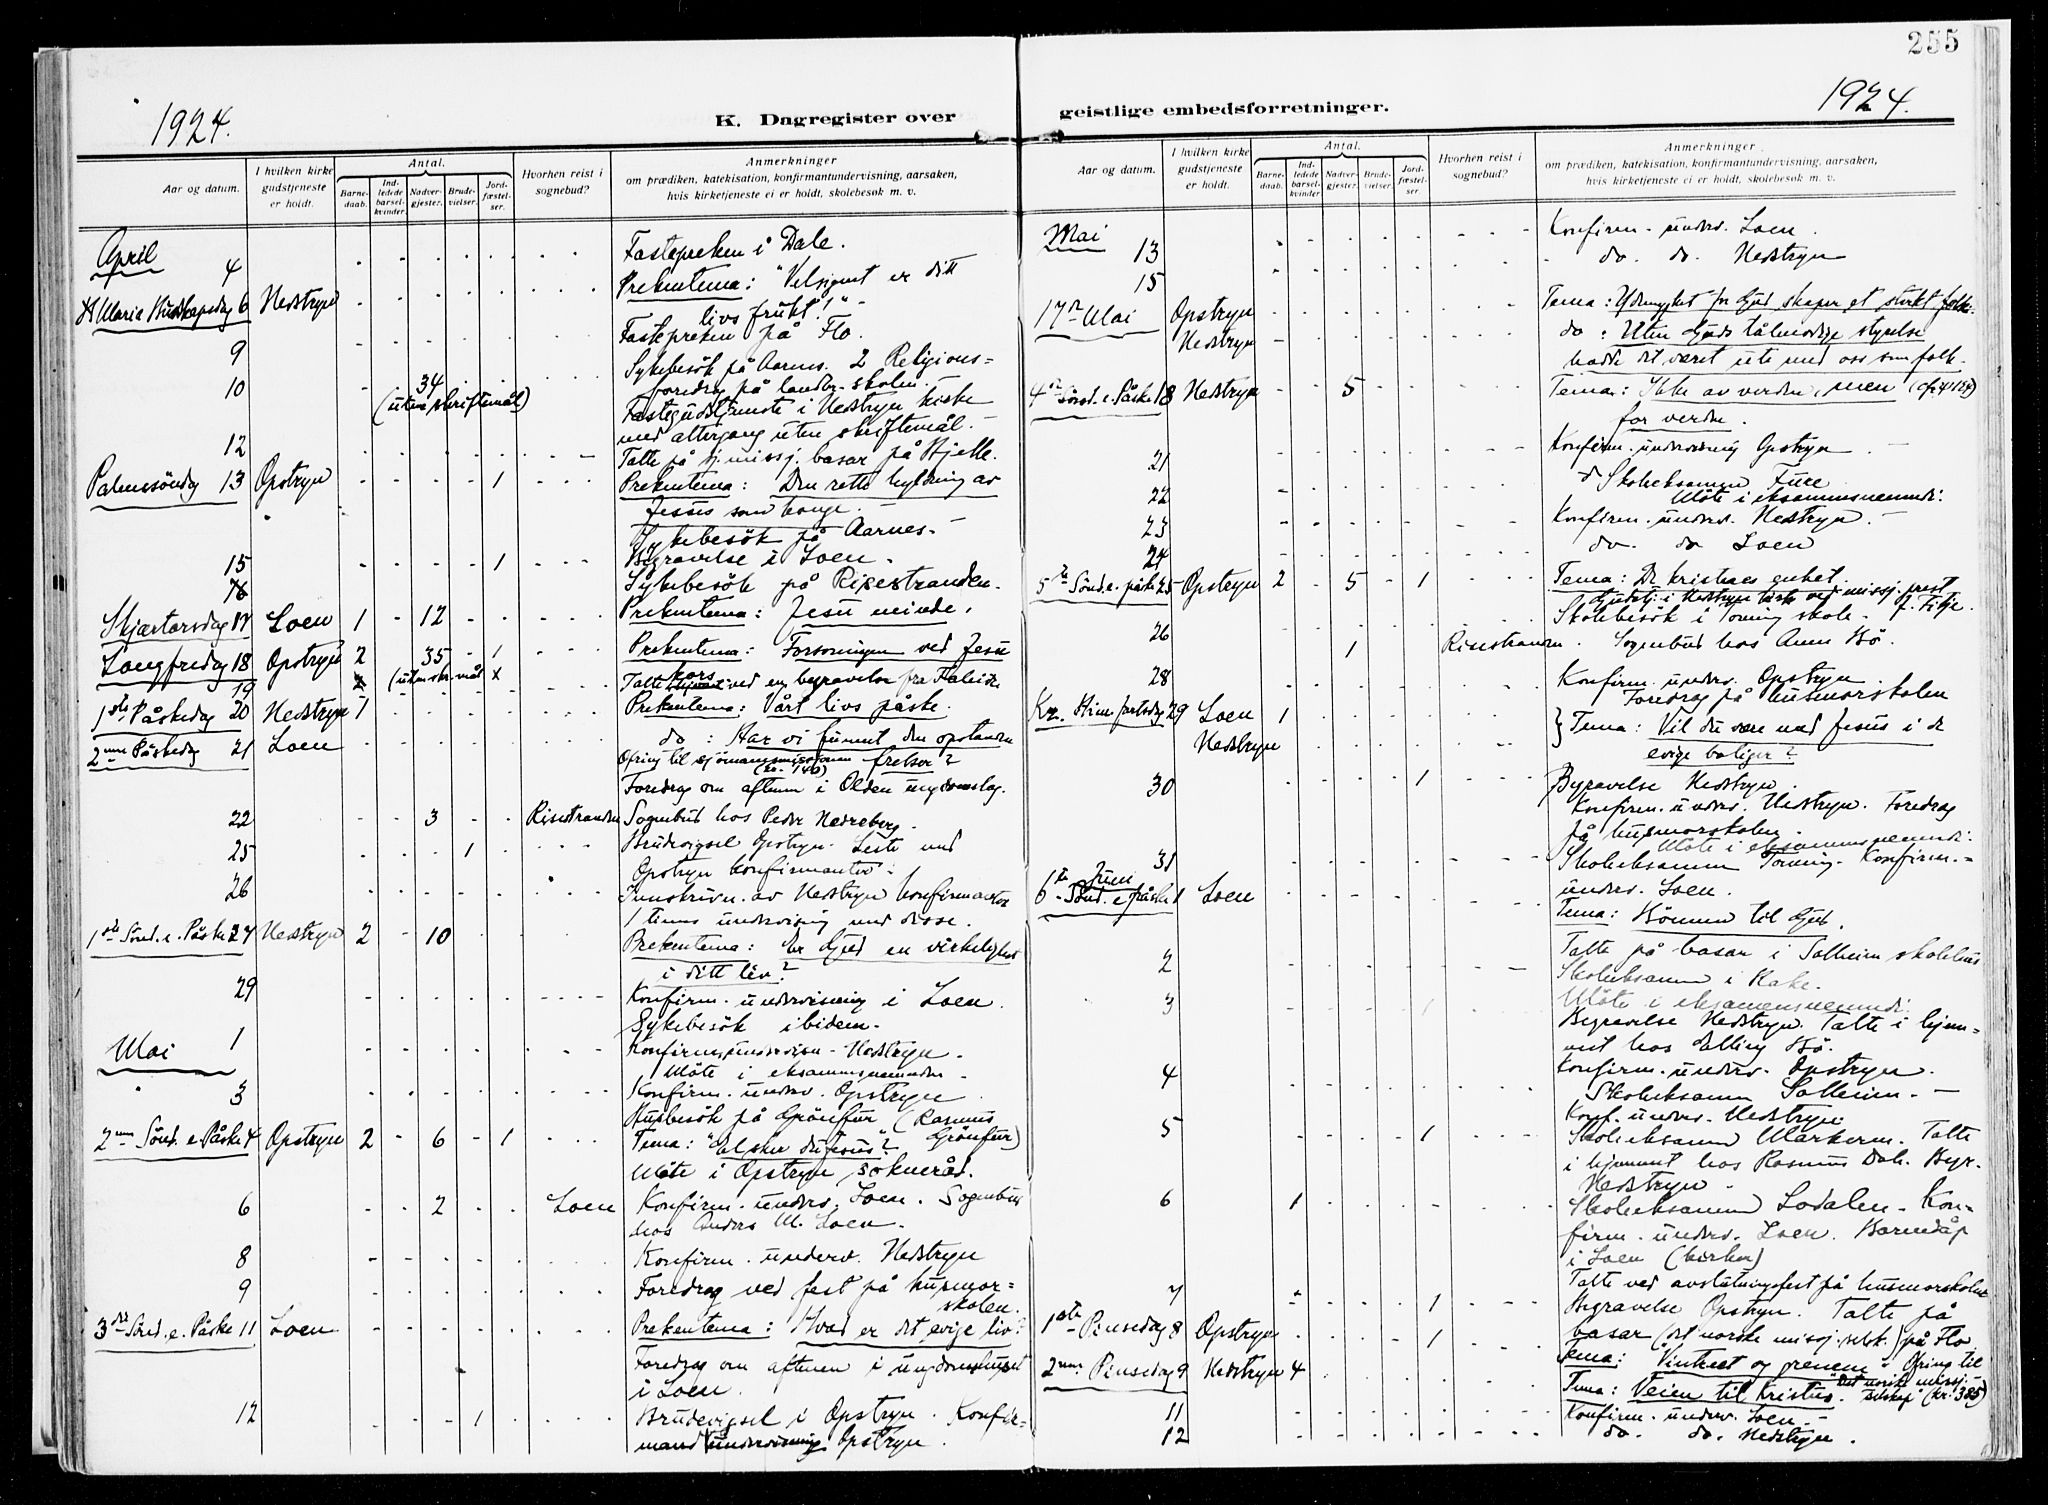 255
1924.
K. Dagregister over
geistlige embedsforretninger.
1924.
Aar og datum.
I hvilken kirke gudstjeneste er holdt.
Antal.
Barnedaab.
Indledede barselkvinder.
Nadvergjester.
Brudevielser.
Jordfæstelser.
Hvorhen reist i sognebud?
Anmerkninger
om prædiken, katekisation, konfirmantundervisning, aarsaken,
hvis kirketjeneste ei er holdt, skolebesøk m. v.
April
4 Fastepreken i Dale.
Maria Budskapsdag 6 Nedstryn Prekentema: "Velsignet er ditt
livs frukt!" -
9 Fastepreken på Flo.
10 34 Sykebesök på Aarnes. 2 Religions=
foredrag på landbr. skolen.
(uten skriftemål) Fastegudstjeneste i Nedstryn kirke
med altergang uten skriftemål. -
12 Talte på sj.missj. basar på Hjelle.
Palmesöndag 13 Opstryn 1 Prekentema: Den rette hyldning av
Jesus som konge. -
Sykebesök på Aarnes. -
15 1 Begravelse i Loen.
16 Sykebesök på Risestranden.
Skjærtorsdag 17 Loen 1 12 Prekentema: Jesu minde.
Langfredag 18 Opstryn 2 35 1 Prekentema: Forsoningen ved Jesu
kors
19 (uten skr.mål) x Talte ved en begravelse fra
1ste Påskedag 20 Nedstryn 1 Prekentema: Vårt livs påske.
2nen Påskedag 21 Loen do: Har vi funnet den opstandne
frelser?
Ofring til sjömannsmissjonen
(kr. 140)
Foredrag om aftenen i Olden ungdomslag.
22 3 Risestranden Sognebud hos Peder Nedreberg.
25 1 Brudevigsel Opstryn. Leste med
Opstryn konfirmanter.
26 Innskrivn. av Nedstryn konfirmanter
1 times undervisning med disse.
1ste Sönd. e. Påske 27 Nedstryn 2 10 Prekentema: Er Gud en virkelighet
i ditt liv?
29 Konfirm. undervisning i Loen.
Sykebesök ibidem.
Mai 1 Konfirm. undervisn. Nedstryn.
Möte i eksamensnemnden.
3 Konfirm. underv. Opstryn.
Husbesök på Grönfur (Rasmus
Grönfur)
2nen Sönd. e. Påske 4 Opstryn 2 6 1 Tema: "Elsker du Jesus"?
Möte i Opstryn sokneråd.
6 2 Loen Konfirm. underv. Loen. Sognebud
hos Anders M. Loen.
8 Konfirm. underv. Nedstryn
9 Foredrag ved fest på husmor=
skolen.
3die Sönd. e. Påske 11 Loen Prekentema: Hvad er det evige liv?
Foredrag om aftenen i ungdomshuset
i Loen.
12 1 Brudevigsel i Opstryn. Konfir-
mandundervisning Opstryn.
Aar og datum.
I hvilken kirke gudstjeneste er holdt.
Antal.
Barnedaab.
Indledede barselkvinder.
Nadvergjester.
Brudevielser.
Jordfæstelser.
Hvorhen reist i sognebud?
Anmerkninger
om prædiken, katekisation, konfirmantundervisning, aarsaken,
hvis kirketjeneste ei er holdt, skolebesøk m. v.
Mai
13 Konfirm. underv. Loen.
15 do. do. Nedstryn
17de Mai Opstryn Tema: Ydmyghet for Gud skaper et sterkt folk.
Nedstryn do: Uten Guds tålmodige styrelse
hadde det været ute med oss som folk.
4de Sönd. e. Påske 18 Nedstryn 5 Tema: Ikke av verden, men
for verden.
21 Konfirm. undervisning Opstryn
22 Skoleeksamen Fure
Möte i eksamensnemndi.
23 Konfirm. underv. Nedstryn.
24 do. do Loen
5te Sönd. e. påske 25 Opstryn 2 5 1 Tema: De kristnes enhet.
Gudstj. i Nedstryn kirke ved missj. prest
Fitje.
26 Skolebesök i Toning skole.
1 Risestranden. Sognebud hos Anne Bö.
28 Konfirm. underv. Opstryn.
Foredrag på husmorskolen
Kr. Himmelfartsdag 29 Loen 1 Tema: Vil du være med Jesus i de
Nedstryn evige boliger?
30 1 Begravelse Nedstryn.
Konfirm. underv. Nedstryn. Foredrag
på husmorskolen.
Möte i eksamensnemndi.
31 Skoleeksamen Toning. Konfirm.-
underv. Loen.
Juni
6te Sönd. e. påske 1 Loen Tema: Bönnen til Gud.
2 Talte på basar i Solheim skolehus
Skoleeksamen i Rake.
3 1 Möte i eksamensnemndi.
Begravelse Nedstryn. Talte i hjem-
met hos Elling Bö.
4 Konfirm. underv. Opstryn.
Skoleeksamen Solheim. -
Konf. underv. Nedstryn
5 1 Skoleeksamen Markane. Talte
i hjemmet hos Rasmus Dale. Begr.
Nedstryn.
6 1 Skoleeksamen Lodalen. Kon-
firm. underv. Loen. Barnedåp
i Loen (kirken)
7 1 Talte ved avslutningsfest på husmorskolen
Begravelse Opstryn. Talte på
basar (det norske missj. selsk.) på Flo
1ste Pinsedag 8 Opstryn 1 Tema: Vintreet og grenene. Ofring til
Det norske missj.-
selskap (kr. 385)
2nen Pinsedag 9 Nedstryn 4 Tema: Veien til Kristus.
11 Konfirm. underv. Loen. -
12 do. do. Nedstryn.